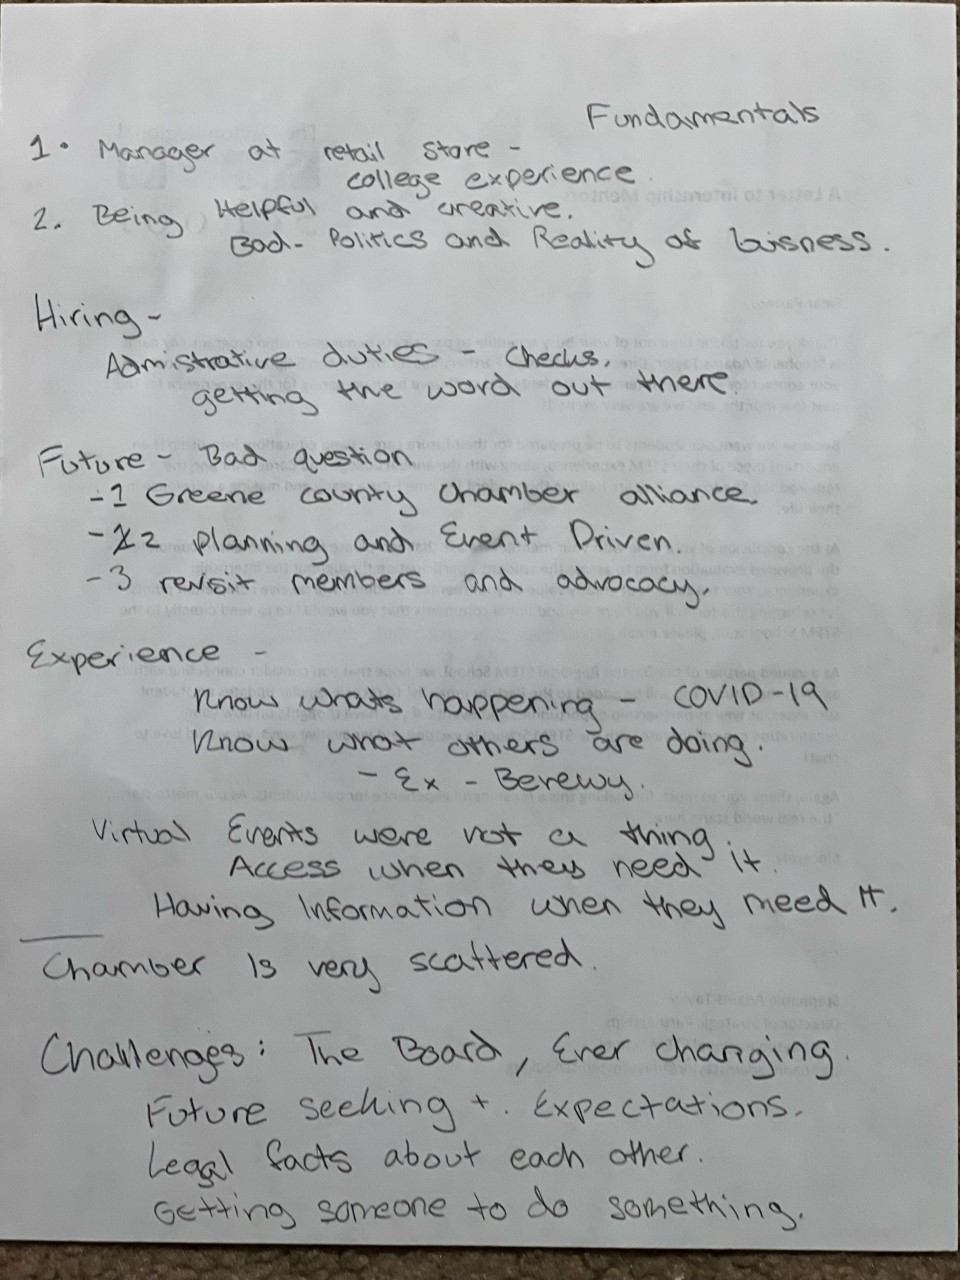 Fundamentals
1. Manager at retail store -
college experience.
2. Being Helpful and creative.
Bad- Politics and Reality of buisness.
Hiring -
Admistrative duties - Checks.
getting the word out there.
Future - Bad question
-1 Greene county Chamber alliance.
-2 planning and Event Driven.
-3 revisit members and advocacy.
Experience -
Know whats happening - COVID-19
Know what others are doing.
- Ex - Berewy.
Virtual Events were not a thing.
Access when they need it.
Having Information when they need It.
Chamber Is very scattered.
Challenges: The Board, Ever changing.
Future seeking +. Expectations.
Legal facts about each other.
Getting someone to do something.